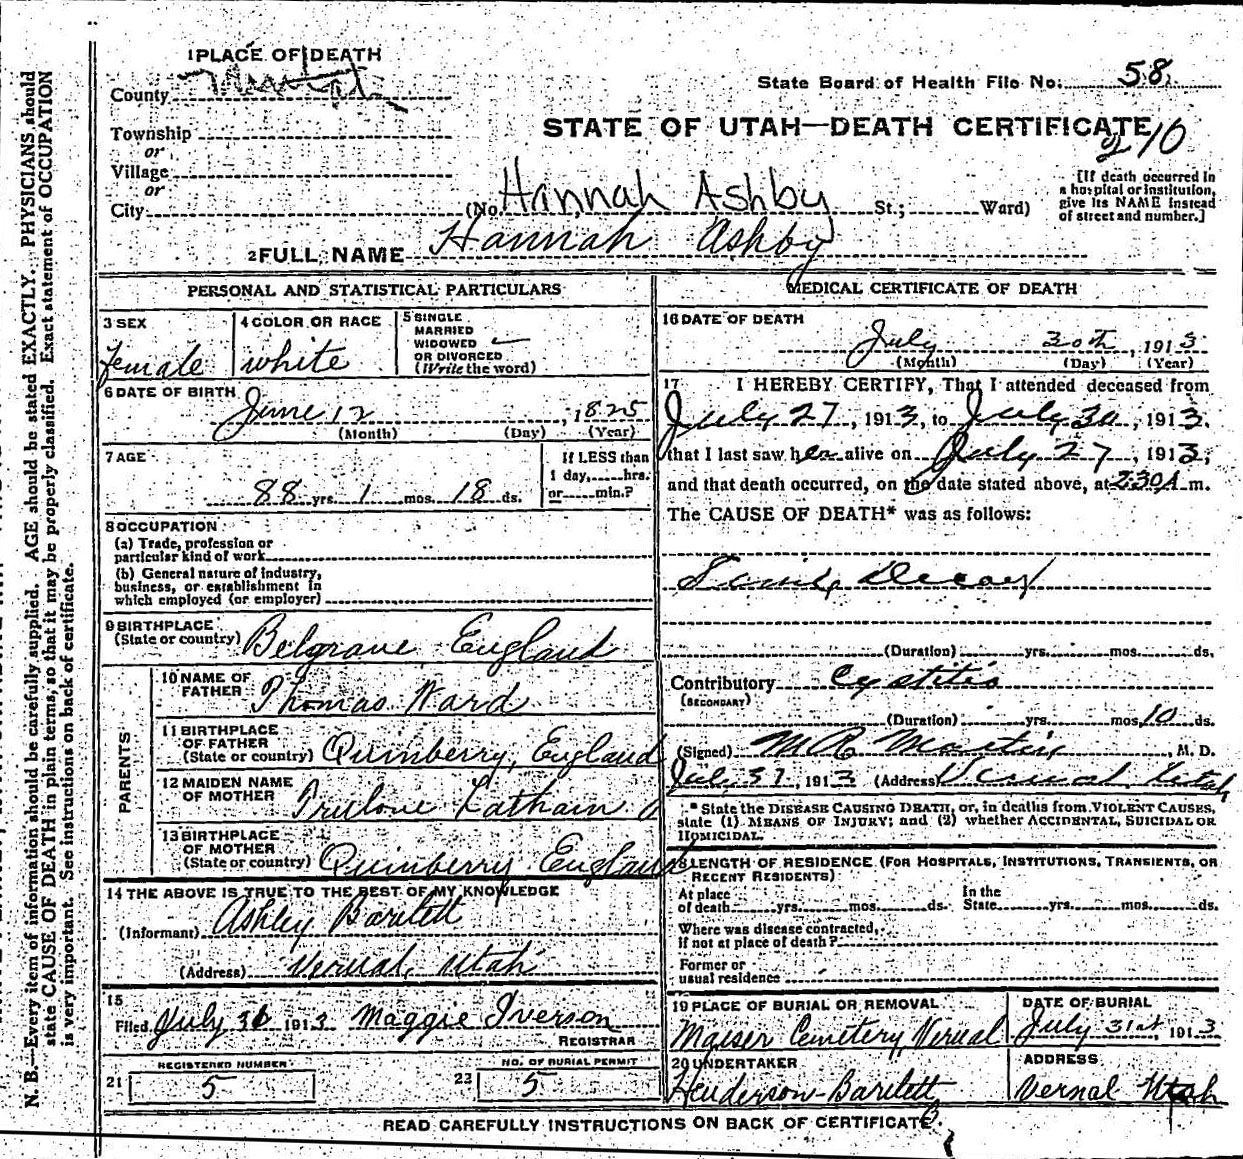 1 PLACE OF DEATH
County
State Board of Health File No. 58
Township
or
STATE OF UTAH—DEATH CERTIFICATE
210
Village
or
City (No. Hannah Ashby St.; Ward)
[If death occurred in
a hospital or institution,
give its NAME instead
of street and number.]
2 FULL NAME Hannah Ashby
PERSONAL AND STATISTICAL PARTICULARS
3 SEX
female
4 COLOR OR RACE
white
5 SINGLE
MARRIED
WIDOWED
OR DIVORCED
(Write the word)
6 DATE OF BIRTH
June 12, 1825
(Month) (Day) (Year)
7 AGE
88 yrs. 1 mos. 18 ds.
If LESS than
1 day, hrs.
or min.?
8 OCCUPATION
(a) Trade, profession or
particular kind of work
(b) General nature of industry,
business, or establishment in
which employed (or employer)
9 BIRTHPLACE
(State or country) Belgrave England
PARENTS
10 NAME OF
FATHER Thomas Ward
11 BIRTHPLACE
OF FATHER
(State or country) Quimberry, England
12 MAIDEN NAME
OF MOTHER Trulove Latham
13 BIRTHPLACE
OF MOTHER
(State or country) Quimberry England
14 THE ABOVE IS TRUE TO THE BEST OF MY KNOWLEDGE
(Informant) Ashley Bartlett
(Address) Vernal, Utah
15
Filed July 31 1913 Maggie Iverson
REGISTRAR
21 REGISTERED NUMBER
5
22 NO. OF BURIAL PERMIT
5
MEDICAL CERTIFICATE OF DEATH
16 DATE OF DEATH
July 30th, 1913
(Month) (Day) (Year)
17 I HEREBY CERTIFY, That I attended deceased from
July 27, 1913, to July 30, 1913,
that I last saw her alive on July 27, 1913,
and that death occurred, on the date stated above, at 2:30 A m.
The CAUSE OF DEATH* was as follows:
Senile Decay
(Duration) yrs. mos. ds.
Contributory Cystitis
(SECONDARY)
(Duration) yrs. mos. 10 ds.
(Signed) M. D.
July 31, 1913 (Address) Vernal Utah
* State the DISEASE CAUSING DEATH, or, in deaths from VIOLENT CAUSES,
state (1) MEANS OF INJURY; and (2) whether ACCIDENTAL, SUICIDAL OR
HOMICIDAL.
18 LENGTH OF RESIDENCE (FOR HOSPITALS, INSTITUTIONS, TRANSIENTS, OR
RECENT RESIDENTS)
At place
of death yrs. mos. ds.
In the
State yrs. mos. ds.
Where was disease contracted,
if not at place of death?
Former or
usual residence
19 PLACE OF BURIAL OR REMOVAL
Maeser Cemetery, Vernal
DATE OF BURIAL
July 31st, 1913
20 UNDERTAKER
Henderson-Bartlett
ADDRESS
Vernal Utah
READ CAREFULLY INSTRUCTIONS ON BACK OF CERTIFICATE.
N. B.—Every item of information should be carefully supplied. AGE should be stated EXACTLY. PHYSICIANS should
state CAUSE OF DEATH in plain terms, so that it may be properly classified. Exact statement of OCCUPATION
is very important. See instructions on back of certificate.